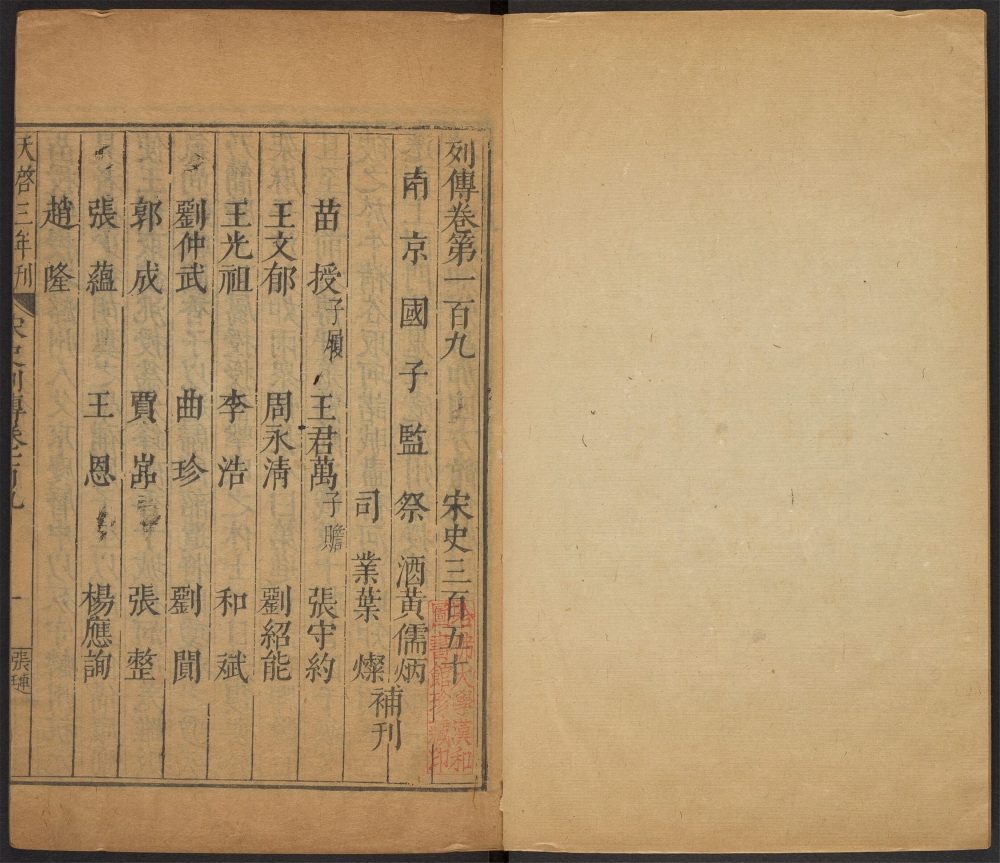 列傳卷第一百九 宋史三百五十
南京國子監祭酒黃儒炳
司業葉燦
補刊
苗授子履 王君萬子贍 張守約
王文郁 周永清 劉紹能
王光祖 李浩 和斌
劉仲武 曲珍 劉闃
郭成 賈嵓 張整
張蘊 王恩 楊應詢
趙隆
天啓三年刊 宋史列傳卷一百九 一 張璉
哈佛大學漢和
圖書館珍藏印